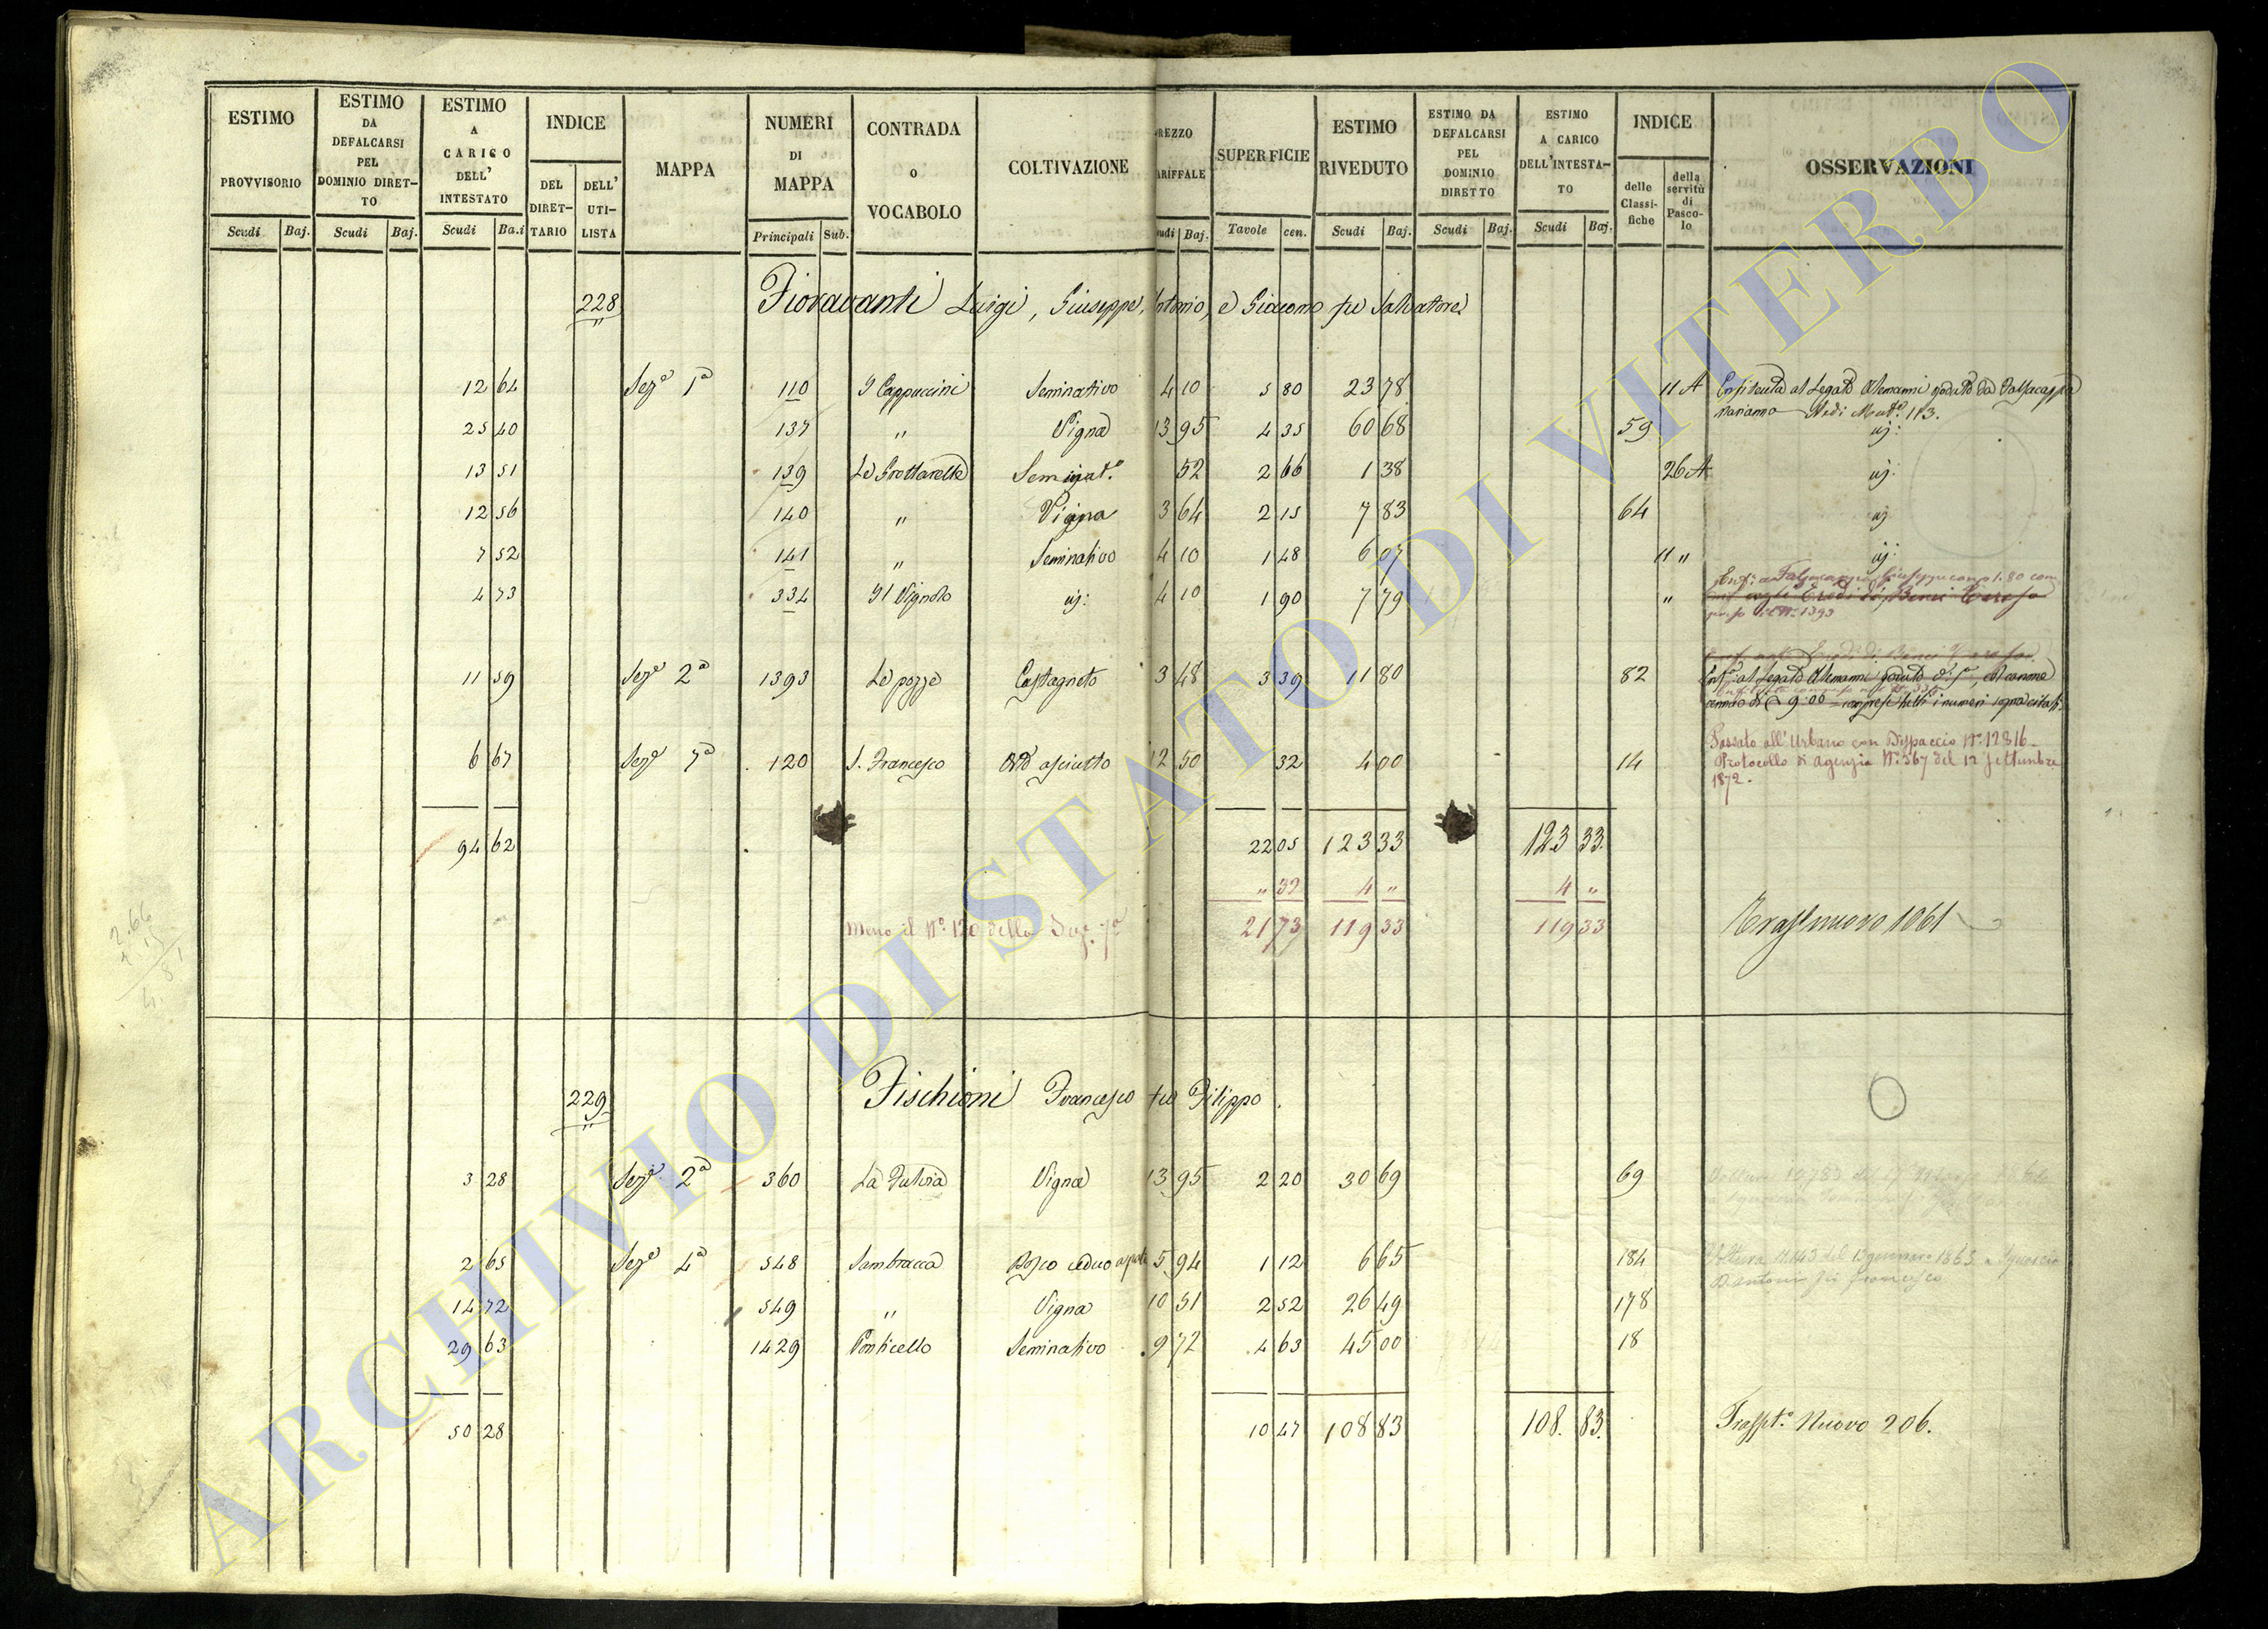 ESTIMO PROVVISORIO Scudi Baj.
ESTIMO DA DEFALCARSI PEL DOMINIO DIRETTO Scudi Baj.
ESTIMO A CARICO DELL' INTESTATO Scudi Ba.i
INDICE DEL DIRETTARIO DELL' UTILISTA
MAPPA
NUMERI DI MAPPA Principali Sub.
CONTRADA o VOCABOLO
COLTIVAZIONE
REZZO ARIFFALE udi Baj.
SUPERFICIE Tavole cen.
ESTIMO RIVEDUTO Scudi Baj.
ESTIMO DA DEFALCARSI PEL DOMINIO DIRETTO Scudi Baj.
ESTIMO A CARICO DELL'INTESTATO Scudi Baj.
INDICE delle Classifiche della servitù di Pascolo
OSSERVAZIONI
228 Fioravanti Luigi, Giuseppe, Antonio, e Giacomo fu Salvatore
12 64 Seze 1a 110 I Cappuccini Seminativo 4 10 5 80 23 78 11 A Enfiteuta al Legato Alemanni goduto da Falzacappa
Marianna Vedi Mate 113.
25 40 137 " Vigna 13 95 4 35 60 68 59 uj:
13 51 139 Le Grottarelle Seminat.o 52 2 66 1 38 26 A uj:
12 56 140 " Vigna 3 64 2 15 7 83 64 uj
7 52 141 " Seminativo 4 10 1 48 6 07 11 " uj:
4 73 334 Il Vignolo uj: 4 10 1 90 7 79 "
11 59 Seze 2a 1393 Le pozze Castagneto 3 48 3 39 11 80 82 Enfta al Legato Alemanni goduto
6 67 Seze 7a 120 S. Francesco Orto asciutto 12 50 32 4 00 14 Passato all'Urbano con Dispaccio No 12816
Protocollo di Agenzia No 567 del 12 Settembre
1872.
94 62 22 05 123 33 123 33.
" 32 4 " 4 "
Meno il No 120 della Seze 7a 21 73 119 33 119 33 Trasp nuovo 1061
2.66
2.15
4.81
229 Fischioni Francesco fu Filippo.
3 28 Seze 2a 360 La Fulvia Vigna 13 95 2 20 30 69 69
2 65 Seze 4a 548 Sambracca Bosco ceduo 5 94 1 12 6 65 184 Voltura 11143 del 13 gennaro 1865
14 72 549 " Vigna 10 51 2 52 26 49 178
29 63 1429 Ponticello Seminativo 9 72 4 63 45 00 18
50 28 10 47 108 83 108. 83. Traspt.o Nuovo 206.
ARCHIVIO DI STATO DI VITERBO